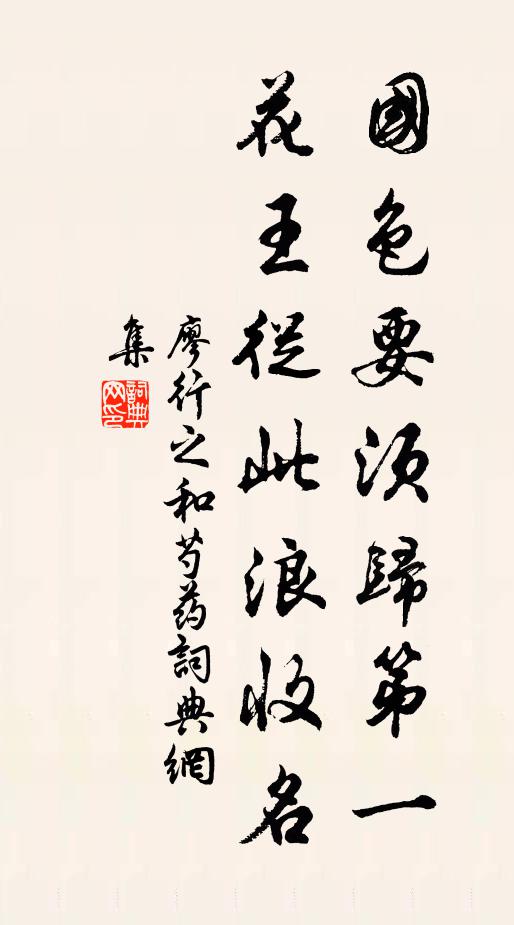 國色要須歸第一
花王從此浪收名
廖行之和芍药詞典網
集
詞典
网印